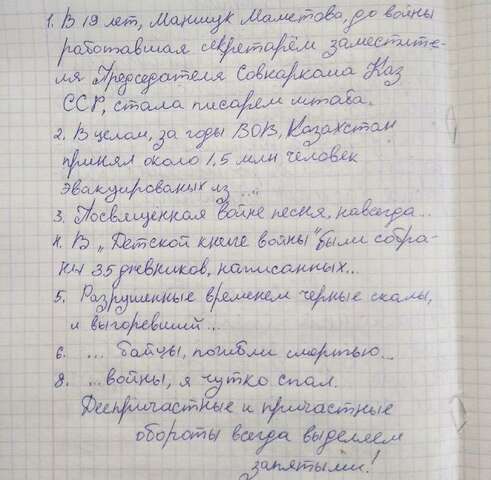 1. В 19 лет, Маншук Маметова, до войны
работавшая секретарём заместите-
ля Председателя Совнаркома Каз
ССР, стала писарем штаба.
2. В целом, за годы ВОВ, Казахстан
принял около 1,5 млн человек
эвакуированых из ....
3. Посвящённая войне песня, навсегда...
4. В „Детской книге войны" были собра-
ны 35 дневников, написанных...
5. Разрушенные временем черные скалы,
и выгоревший...
6. ... байцы, погибли смертью...
8. ... войны, я чутко спал.
Деепричастные и причастные
обороты всегда выделяем
запятыми!